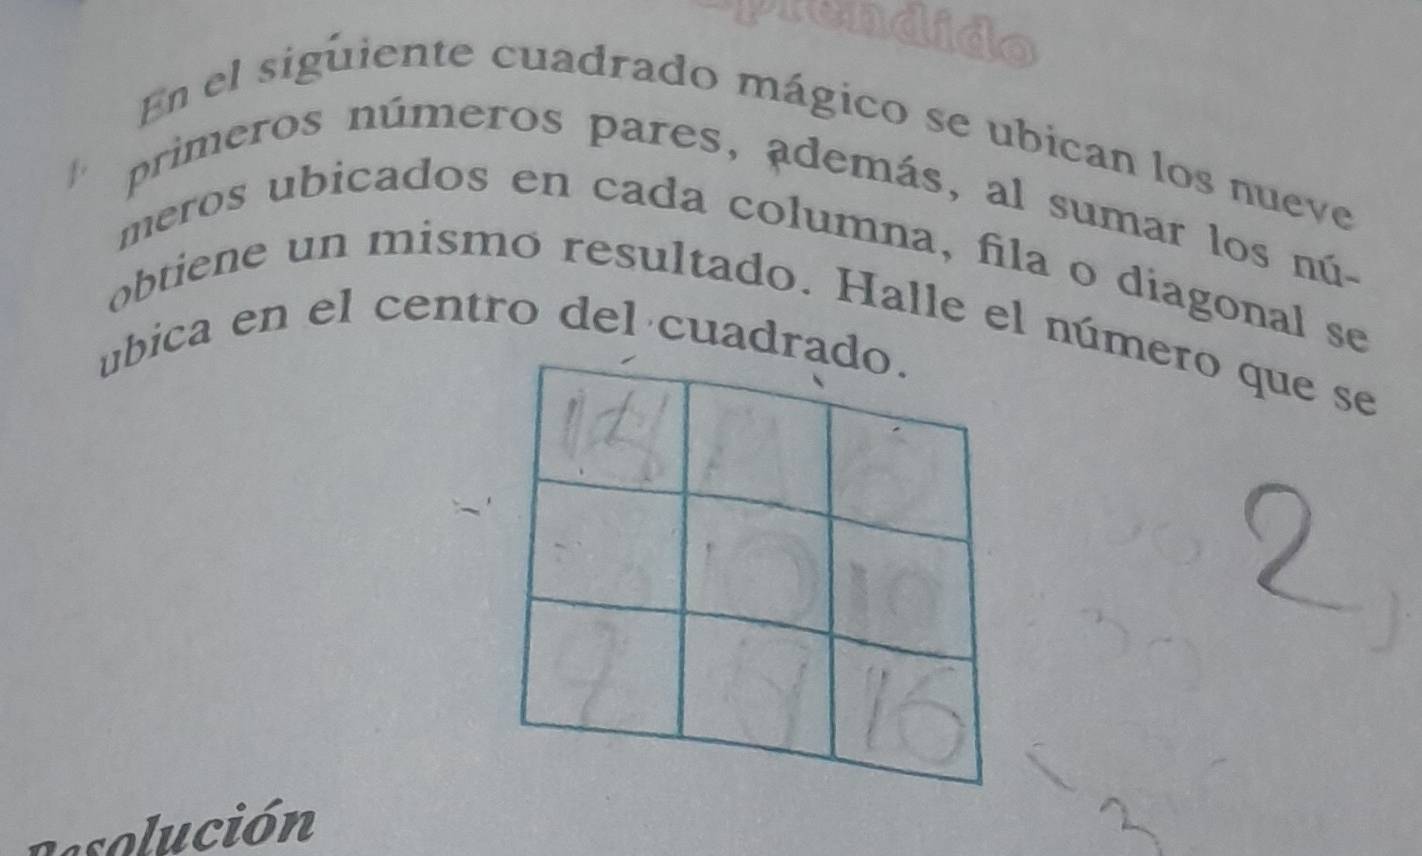 En el siguiente cuadrado mágico se ubican los nueve
primeros números pares, además, al sumar los nú-
meros ubicados en cada columna, fila o diagonal se
obtiene un mismo resultado. Halle el número que se
ubica en el centro del cuadrado.
14
10 10
2 16
2
Resolución